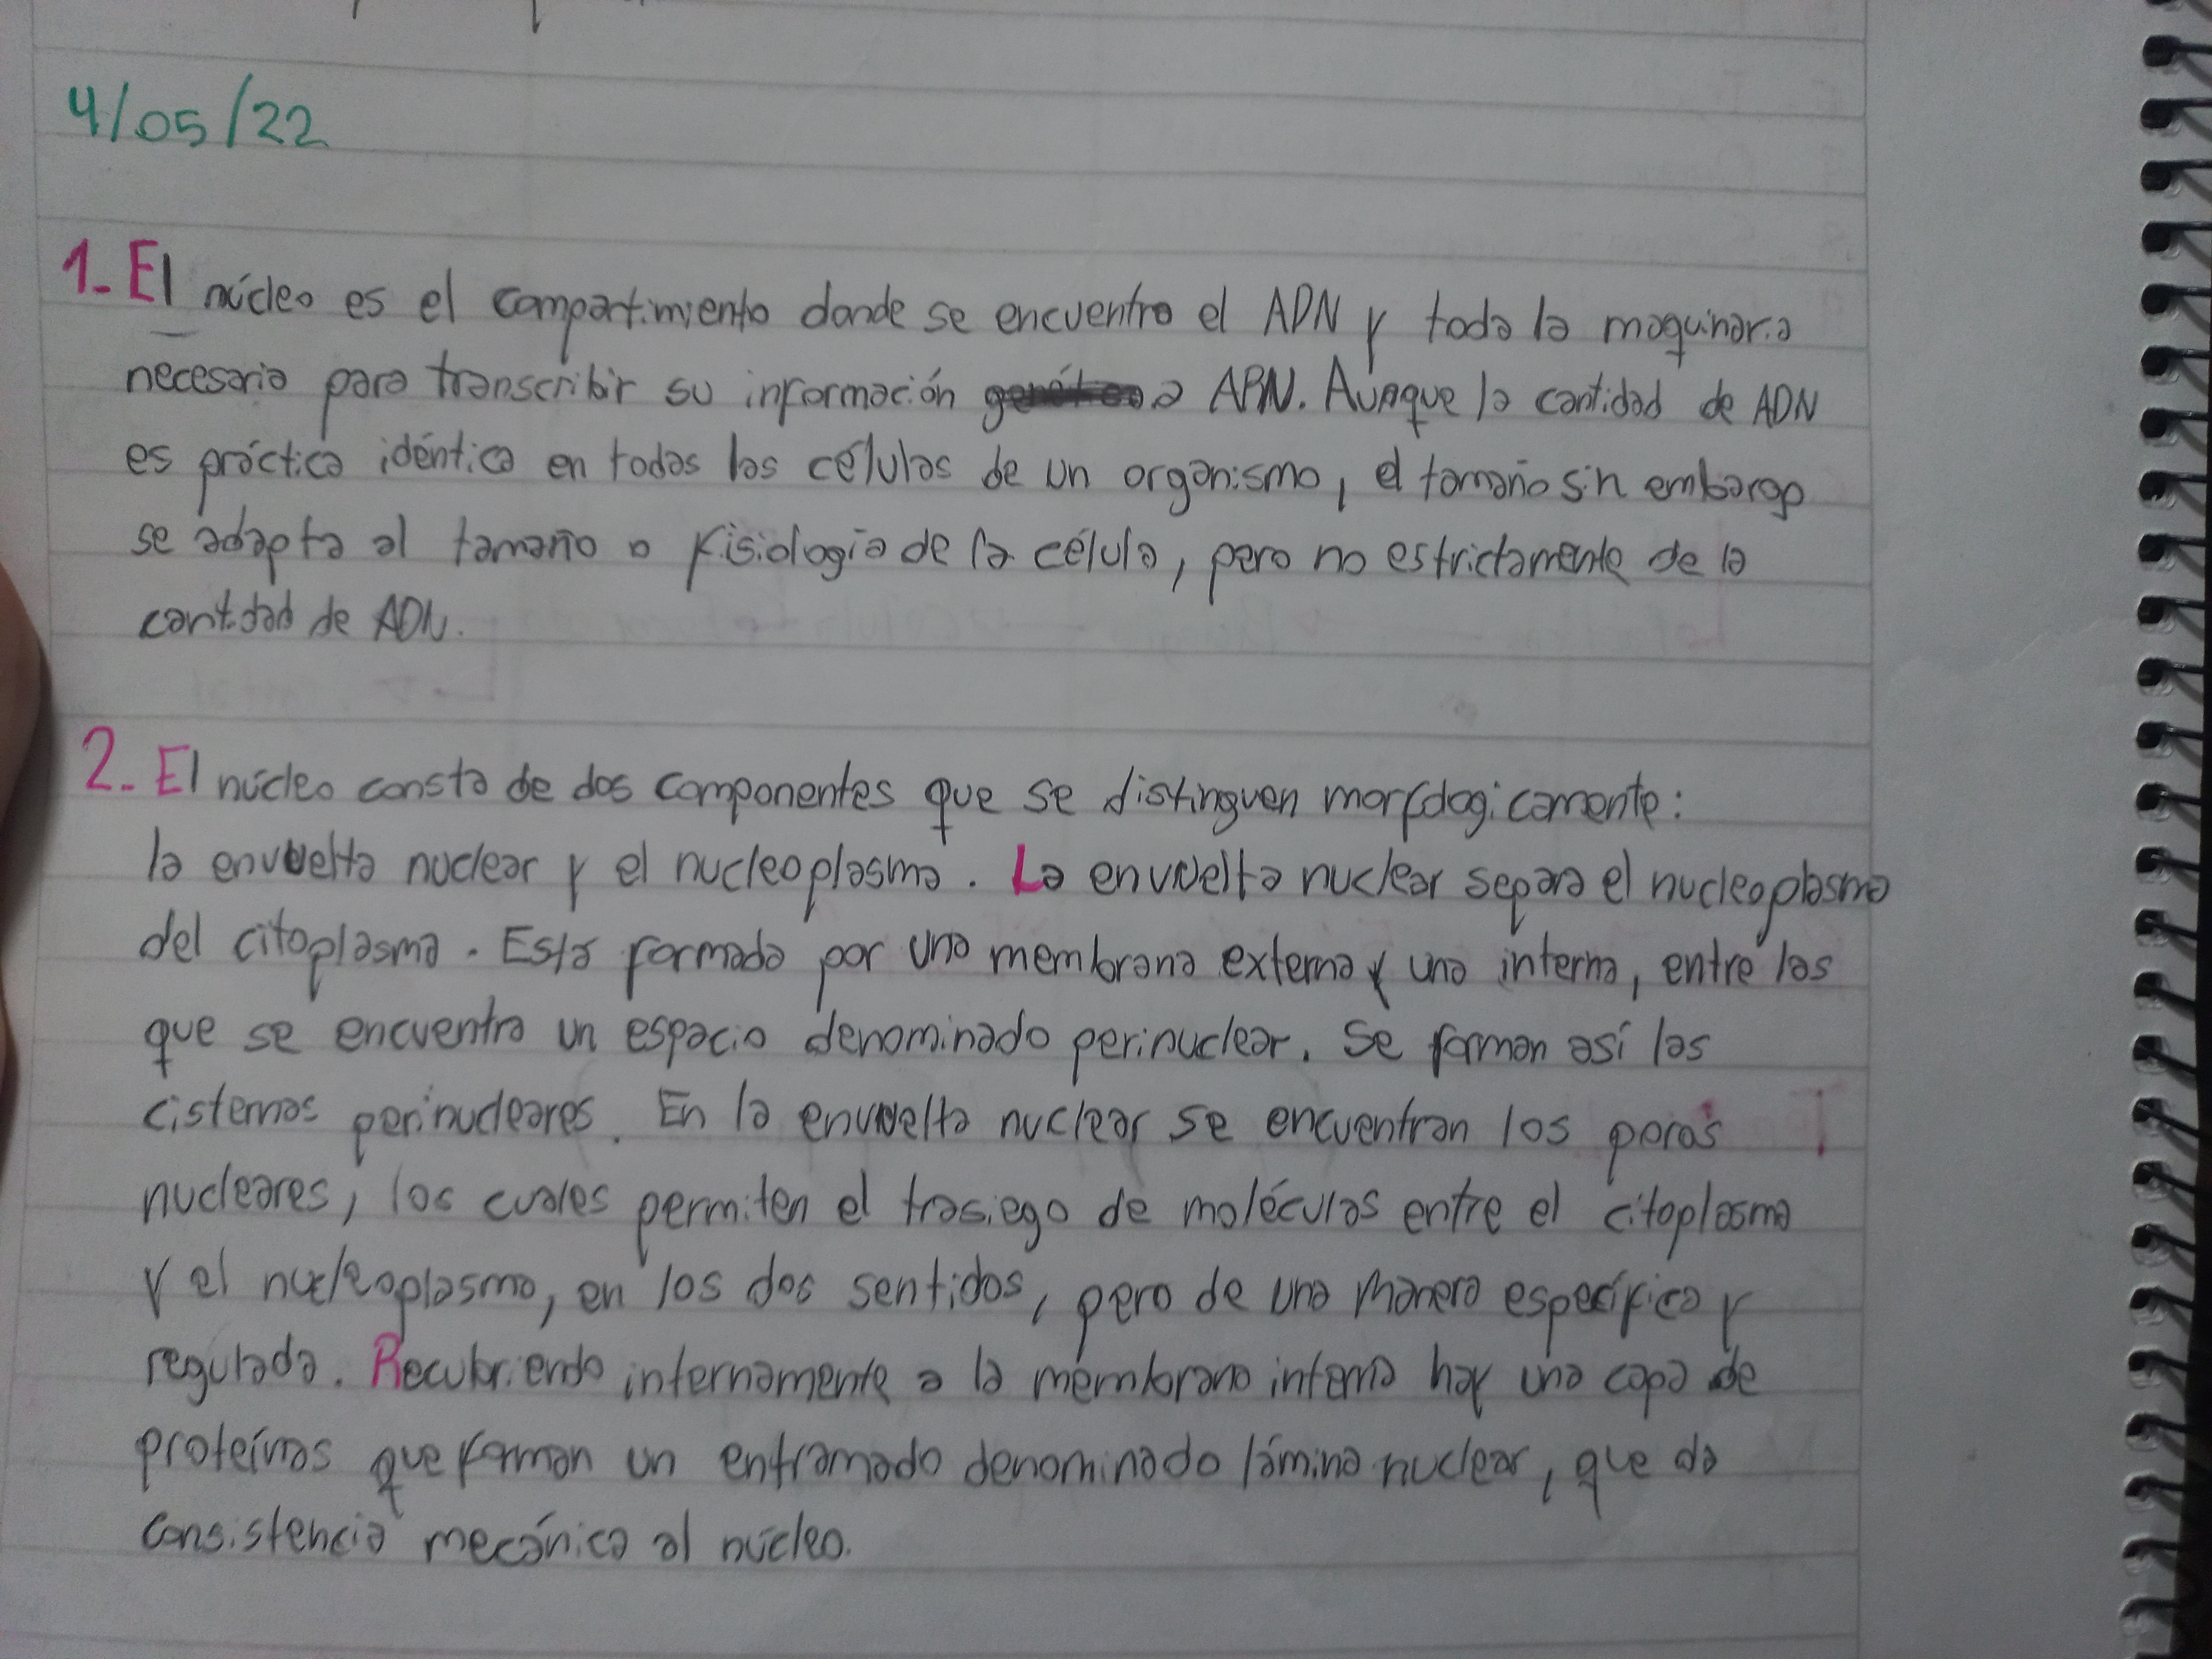 4/05/22
1- El núcleo es el compartimiento donde se encuentra el ADN y toda la maquinaria
necesaria para transcribir su información a ARN. Aunque la cantidad de ADN
es práctica idéntica en todas las células de un organismo, el tamaño sin embargo
se adapta al tamaño o fisiología de la célula, pero no estrictamente de la
cantidad de ADN.
2- El núcleo consta de dos componentes que se distinguen morfologicamente:
la envuelta nuclear y el nucleoplasma. La envuelta nuclear separa el nucleoplasma
del citoplasma. Está formada por una membrana externa y una interna, entre las
que se encuentra un espacio denominado perinuclear. Se forman así las
cisternas perinucleares. En la envuelta nuclear se encuentran los poros
nucleares, los cuales permiten el trasiego de moléculas entre el citoplasma
y el nucleoplasma, en los dos sentidos, pero de una manera específica y
regulada. Recubriendo internamente a la membrana interna hay una capa de
proteínas que forman un entramado denominado lámina nuclear, que da
consistencia mecánica al núcleo.